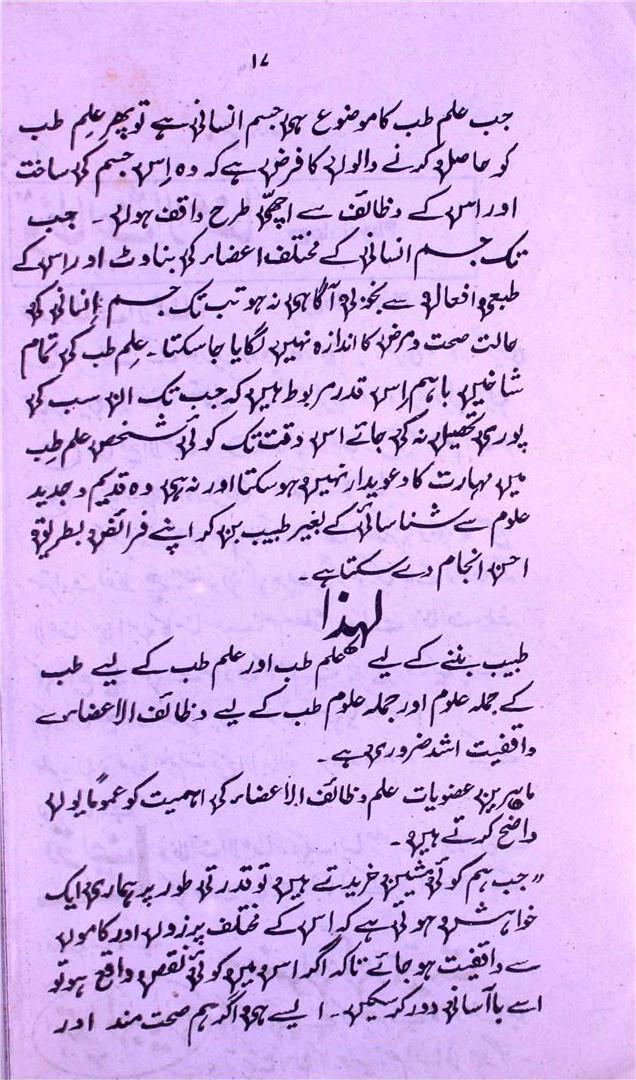 ۱۷
جب علم طب کا موضوع ہی جسم انسانی ہے تو پھر علِم طب
کو حاصل کرنے والوں کا فرض ہے کہ وہ اِس جسم کی ساخت
اور اس کے وظائف سے اچھّی طرح واقف ہوں ۔ جب
تک جسم انسانی کے مختلف اعضاء کی بناوٹ اور اس کے
طبعی افعال سے بخوبی آگاہی نہ ہو تب تک جسم اِنسانی کی
حالت صحت و مرض کا اندازہ نہیں لگایا جا سکتا ۔ علِم طب کی تمام
شاخیں باہم اِس قدر مربوط ہیں کہ جب تک ان سب کی
پوری تحصیل نہ کی جائے اس وقت تک کوئی شخص علم طِب
میں مہارت کا دعویدار نہیں ہو سکتا اور نہ ہی وہ قدیم و جدید
علوم سے شناسائی کے بغیر طبیب بن کر اپنے فرائض بطریق
احسن انجام دے سکتا ہے ۔
لہٰذا
طبیب بننے کے لیے علم طب اور علم طب کے لیے طب
کے جملہ علوم اور جملہ علوم طب کے لیے وظائف الاعضاء سے
واقفیت اشد ضروری ہے ۔
ماہرین عضویات علم وظائف الاعضاء کی اہمیت کو عموماً یوں
واضح کرتے ہیں ۔
”جب ہم کوئی مشین خریدتے ہیں تو قدرتی طور پر ہماری ایک
خواہش ہوتی ہے کہ اس کے مختلف پرزوں اور کاموں
سے واقفیت ہو جائے تاکہ اگر اس میں کوئی نقص واقع ہو تو
اسے بآسانی دور کر سکیں ۔ ایسے ہی اگر ہم صحت مند اور